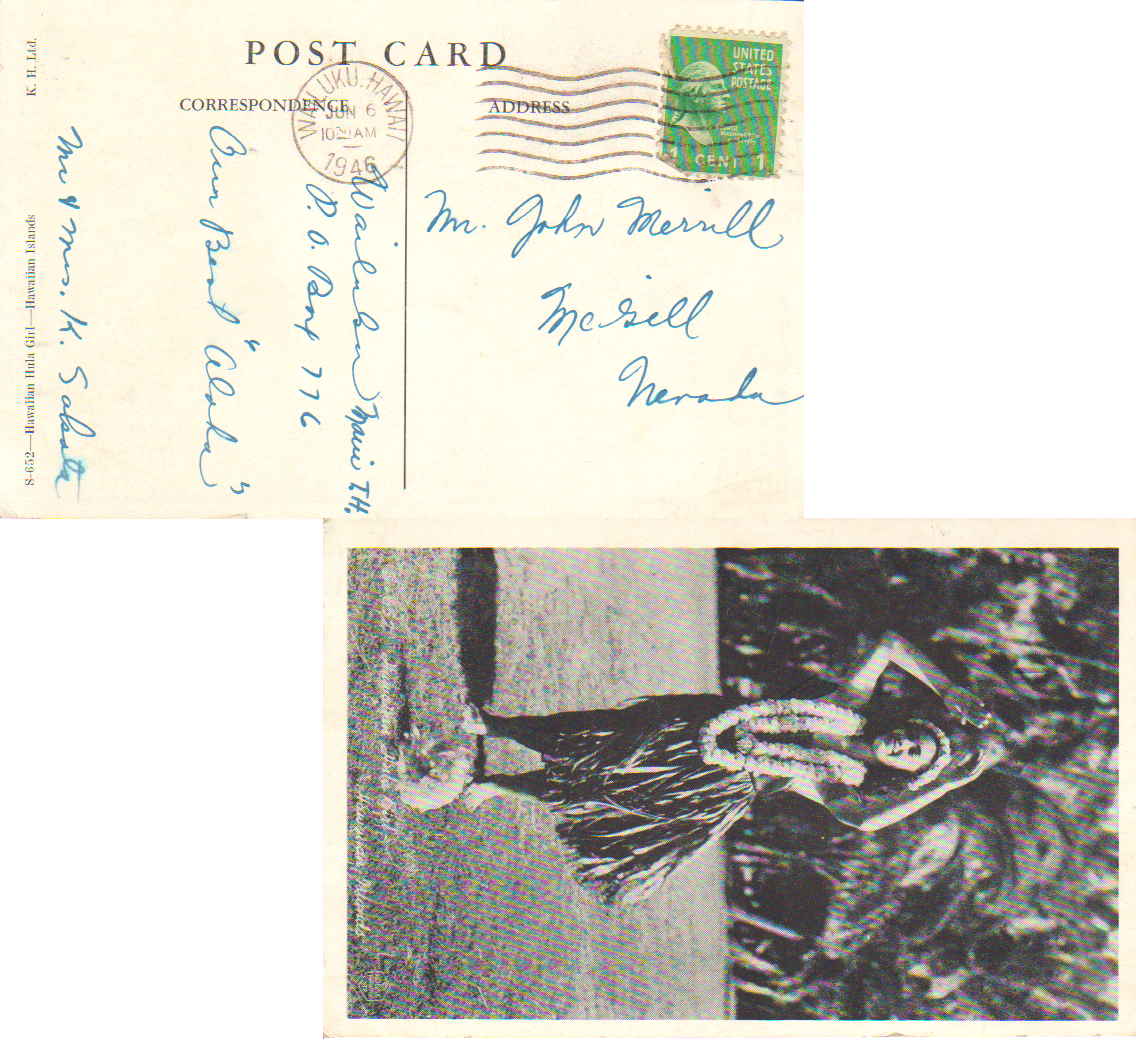 POST CARD
CORRESPONDENCE
ADDRESS
WAILUKU, HAWAII
JUN 6
10 AM
1946
UNITED
STATES
POSTAGE
1 CENT 1
Mr. John Merrill
McGill
Nevada
Wailuku Maui T.H.
P.O. Box 776
Our Best "Aloha"
Mr & Mrs. K. Sakata
S-652—Hawaiian Hula Girl—Hawaiian Islands
K. H. Ltd.
Hawaiian Hula Girl
Hawaiian Islands